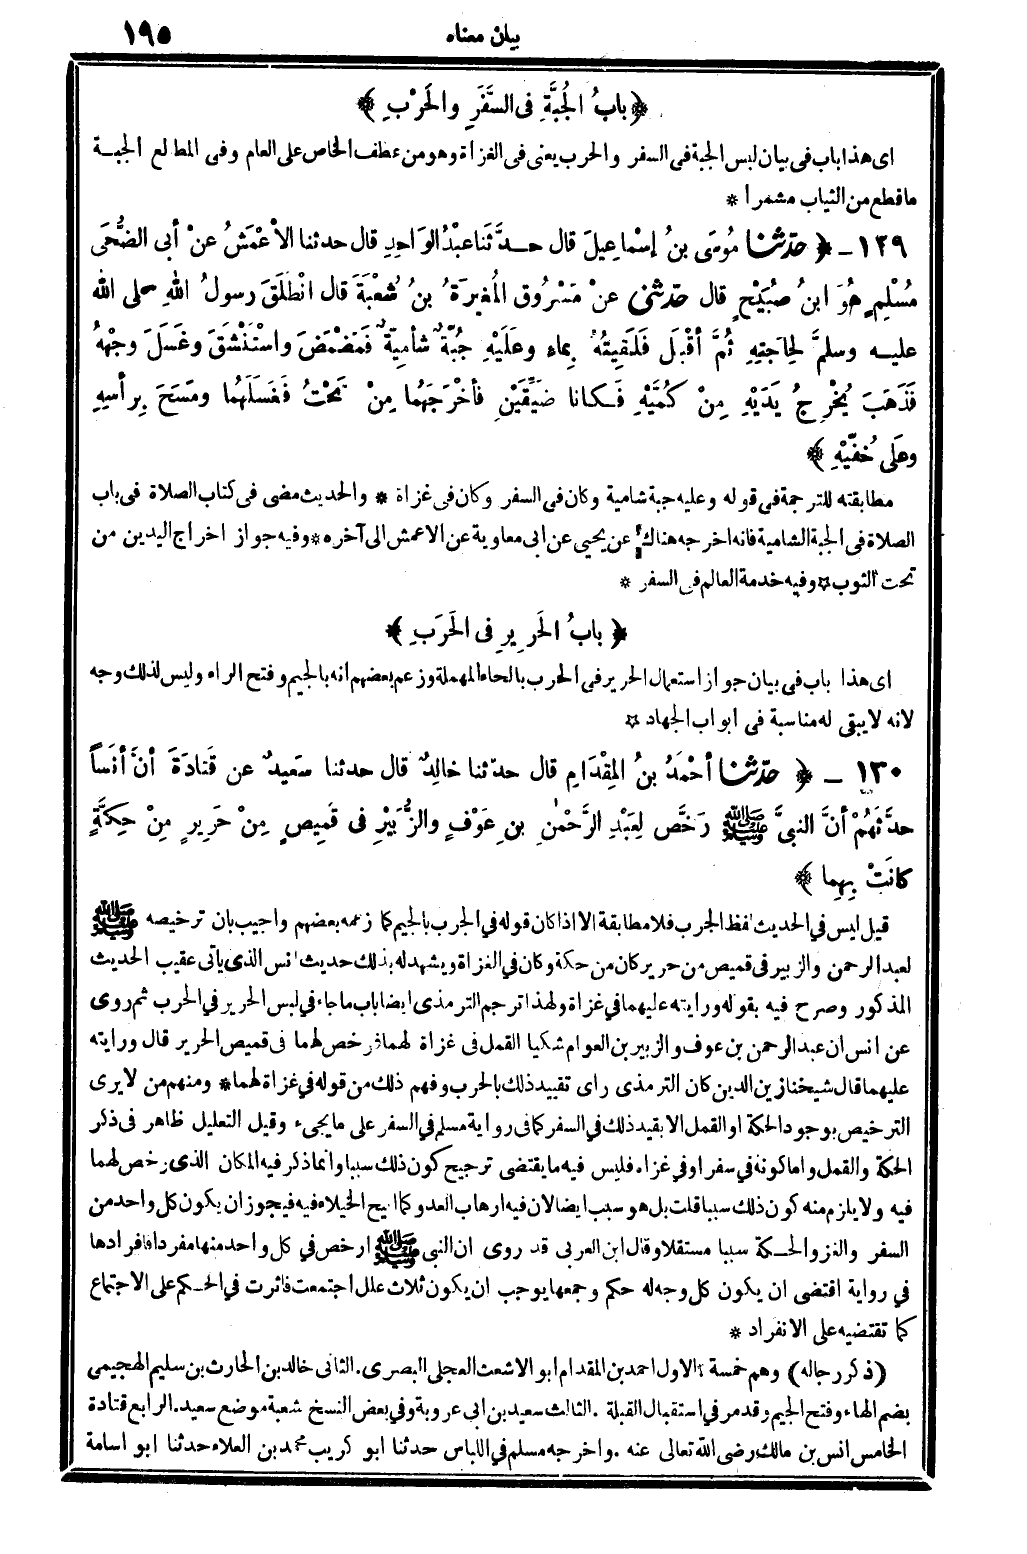 بيان معناه ١٩٥
﴿ بابُ الجُبَّةِ فى السَّفَرِ والحَرْبِ ﴾
اى هذا باب فى بيان لبس الجبة فى السفر والحرب يعنى فى الغزاة وهو من عطف الخاص على العام وفى المطالع الجبة
ما قطع من الثياب مشمرا *
١٢٩ ـ ﴿ حدّثنا مُوسَى بنُ إسْماعِيلَ قال حدَّثَنا عبْدُ الوَاحِدِ قال حدثنا الأعْمَشُ عنْ أبى الضُّحَى
مُسْلِمٍ هُوَ ابنُ صُبَيْحٍ قال حدّثنى عنْ مَسْرُوق المُغِيرَةُ بنُ شُعْبَةَ قال انْطَلَقَ رسولُ اللهِ صلى الله
عليه وسلمَّ لِحاجَتِهِ ثُمَّ أقْبَلَ فَلَقِيتُهُ بِماءٍ وعَلَيْهِ جُبَّةٌ شأمِيةٌ فَمَضْمَضَ واسْتَنْشَقَ وغَسَلَ وجْهَهُ
فَذَهَبَ يُخْرِجُ يَدَيْهِ مِنْ كُمَّيْهِ فَكانا ضَيِّقَيْنِ فأخْرَجَهُما مِنْ تَحْتُ فَغَسَلَهُما ومَسَحَ بِرأسِهِ
وعَلَى خُفَّيْهِ ﴾
مطابقته للترجمة فى قوله وعليه جبة شامية وكان فى السفر وكان فى غزاة * والحديث مضى فى كتاب الصلاة فى باب
الصلاة فى الجبة الشامية فانه اخرجه هناك عن يحيى عن ابى معاوية عن الاعمش الى آخره * وفيه جواز اخراج اليدين من
تحت الثوب * وفيه خدمة العالم فى السفر *
﴿ بابُ الحَرِيرِ فى الحَرَبِ ﴾
اى هذا باب فى بيان جواز استعمال الحرير فى الحرب بالحاء المهملة وزعم بعضهم انه بالجيم وفتح الراء وليس لذلك وجه
لانه لا يبقى له مناسبة فى ابواب الجهاد *
١٣٠ ـ ﴿ حدّثنا أحْمَدُ بنُ المِقْدَامِ قال حدّثنا خالِدٌ قال حدثنا سَعِيدٌ عن قَتادَةَ أنَّ أنَساً
حدَّثَهُمْ أنَّ النبىَّ ﷺ رَخَّصَ لِعَبْدِ الرَّحْمٰنِ بنِ عَوْفٍ والزُّبَيْرِ فى قَمِيصٍ مِنْ حَرِيرٍ مِنْ حِكَّةٍ
كانَتْ بِهِما ﴾
قيل ليس في الحديث لفظ الحرب فلا مطابقة الا اذا كان قوله في الجرب بالجيم كما زعمه بعضهم واجيب بان ترخيصه ﷺ
لعبد الرحمن والزبير فى قميص من حرير كان من حكة وكان في الغزاة ويشهد له بذلك حديث انس الذى يأتى عقيب الحديث
المذكور وصرح فيه بقوله ورايته عليهما في غزاة ولهذا ترجم الترمذى ايضا باب ما جاء في لبس الحرير في الحرب ثم روى
عن انس ان عبد الرحمن بن عوف والزبير بن العوام شكيا القمل فى غزاة لهما فرخص لهما فى قميص الحرير قال ورايته
عليهما قال شيخنا زين الدين كان الترمذى راى تقييد ذلك بالحرب وفهم ذلك من قوله في غزاة لهما * ومنهم من لا يرى
الترخيص بوجود الحكة او القمل الا بقيد ذلك في السفر كما فى رواية مسلم في السفر على ما يجىء وقيل التعليل ظاهر فى ذكر
الحكة والقمل واما كونه في سفر او في غزاء فليس فيه ما يقتضى ترجيح كون ذلك سببا وانما ذكر فيه المكان الذى رخص لهما
فيه ولا يلزم منه كون ذلك سببا قلت بل هو سبب ايضا لان فيه ارهاب العدو كما ابيح الخيلاء فيه فيجوز ان يكون كل واحد من
السفر والغزو والحكة سببا مستقلا وقال ابن العربى قد روى ان النبى ﷺ ارخص في كل واحد منها مفردا فافرادها
في رواية اقتضى ان يكون كل وجه له حكم وجمعها يوجب ان يكون ثلاث علل اجتمعت فاثرت في الحكم على الاجتماع
كما تقتضيه على الانفراد *
(ذكر رجاله) وهم خمسة * الاول احمد بن المقدام ابو الاشعث العجلى البصرى . الثانى خالد بن الحارث بن سليم الهجيمى
بضم الهاء وفتح الجيم وقد مر في استقبال القبلة . الثالث سعيد بن ابى عروبة وفي بعض النسخ شعبة موضع سعيد . الرابع قتادة
الخامس انس بن مالك رضى الله تعالى عنه . واخرجه مسلم في اللباس حدثنا ابو كريب محمد بن العلاء حدثنا ابو اسامة